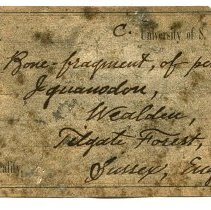 C. University of S
Bone-fragment, of p
Iguanodon,
Wealden,
Tilgate Forest,
Sussex, Eng
ality,